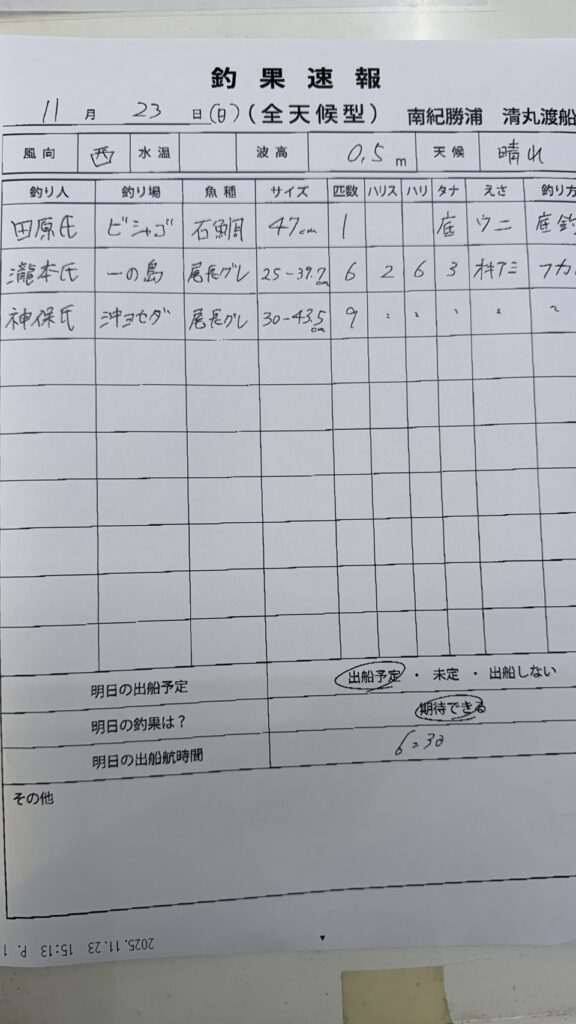 釣果速報
11月23日(日)(全天候型) 南紀勝浦 清丸渡船
風向 西 水温 波高 0.5m 天候 晴れ
釣り人 釣り場 魚種 サイズ 匹数 ハリス ハリ タナ えさ 釣り方
田原氏 ビシャゴ 石鯛 47cm 1 底 ウニ 底釣
瀧本氏 一の島 尾長グレ 25-39.7cm 6 2 6 3 オキアミ フカ
神保氏 沖ヨセダ 尾長グレ 30-43.5cm 9 〃 〃 〃 〃 〃
明日の出船予定 出船予定 ・ 未定 ・ 出船しない
明日の釣果は? 期待できる
明日の出船航時間 6:30
その他
2025.11.23 15:13 P. 1